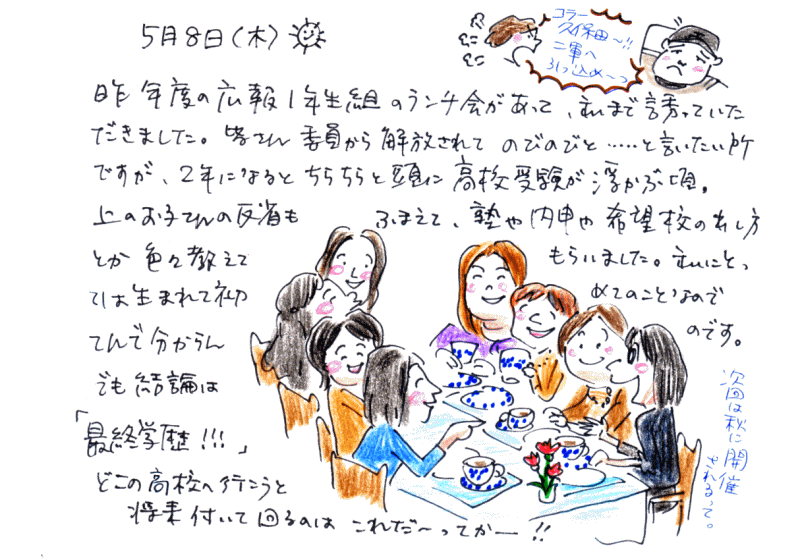 5月8日(木)
コラー
久保田〜!!
二軍へ
引っ込め〜っ
昨年度の広報1年生組のランチ会があって、私まで誘っていた
だきました。皆さん委員から解放されてのびのびと……と言いたい所
ですが、2年になるとちらちらと頭に高校受験が浮かぶ頃。
上のお子さんの反省もふまえて、塾や内申や希望校のあし方
とか色々教えてもらいました。私にとっ
ては生まれて初めてのことなので
てんで分からんのです。
でも結論は
「最終学歴!!!」
どこの高校へ行こうと
将来付いて回るのは これだ〜ってかー!!
次回は秋に開催
されるって。